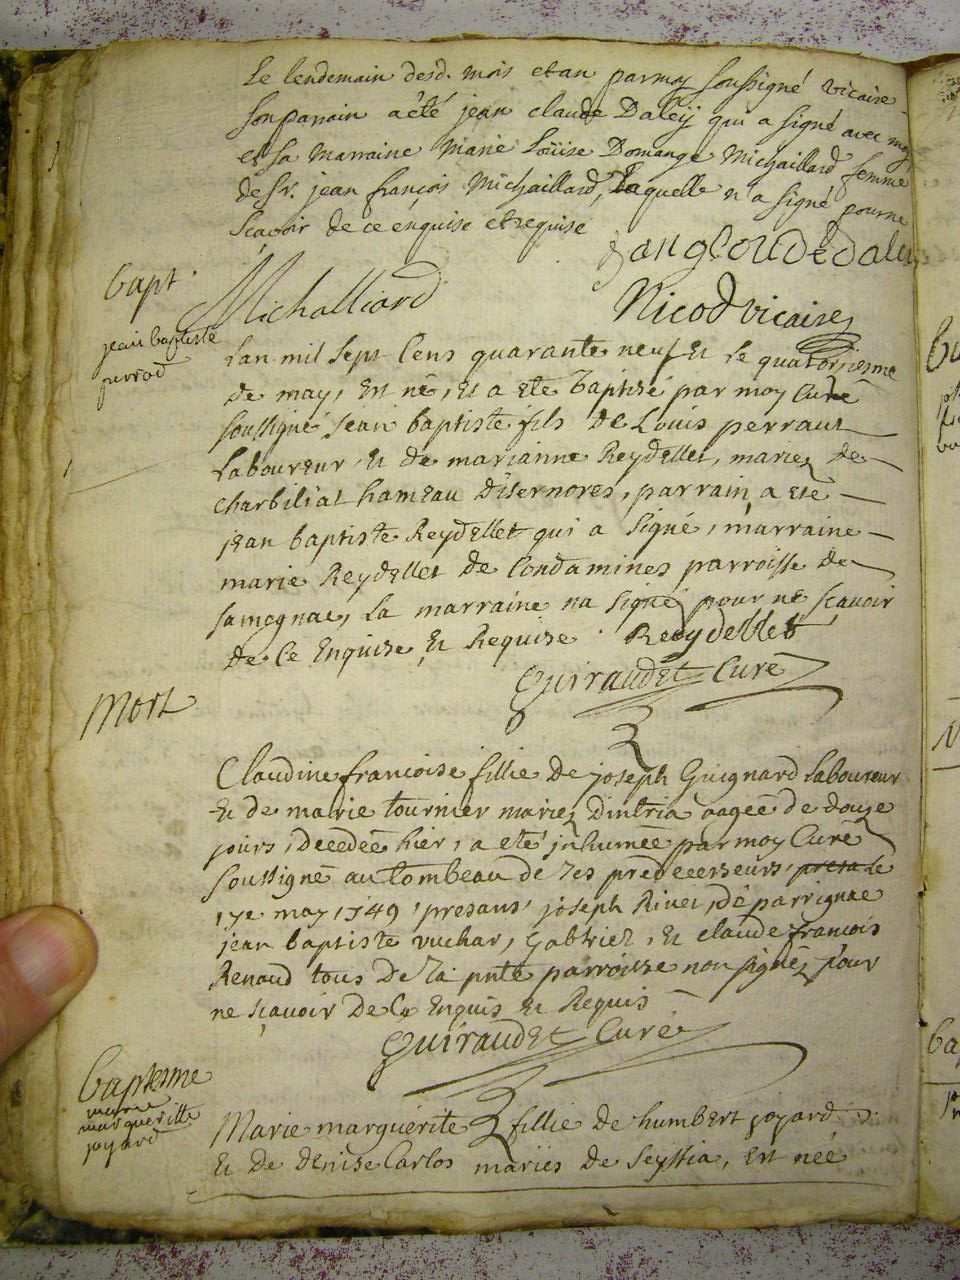 Le lendemain desd. mois et an par moy soussigné vicaire
son parrain a été jean claude Daléÿ qui a signé avec moy
et sa marraine marie Loüise Domange Michaillard femme
de Sr. jean françois Michaillard, laquelle n'a signé pour ne
sçavoir de ce enquise et requise
jan gloude dale
bapt.
Michalliard
Nicod vicaire
jean baptiste
perrod
Lan mil sept Cens quarante neuf et le quatorsiesme
de may, est né, et a eté baptisé par moy Curé
soussigné jean baptiste fils de Louis perraut
Laboureur et de marianne Reydellet, mariez de
charbiliat hameau d'isernores, parrain a eté
jean baptiste Reydellet qui a signé, marraine
marie Reydellet de Condamines parroisse de
samognac, la marraine na signé pour ne scavoir
de Ce Enquise, et Requise. Reydellet
Guiraudet Curé
Mort
Claudine francoise fillie de joseph Guignard Laboureur
et de marie tournier mariez d'intria aagée de douze
jours, decedée hier, a eté inhumée par moy Curé
soussigné au tombeau de ses predecesseurs le
17e may 1749, presans, joseph Rivet, de parrignac
jean baptiste vuchar, Gabriel, et claude francois
Renaud tous de la pnte parroisse non signéz pour
ne sçavoir de Ce Enquis et Requis
Guiraudet Curé
baptesme
marie
margueritte
joyard
Marie marguerite fillie de humbert joyard
et de denise Carlos mariés de Seyssia, est née